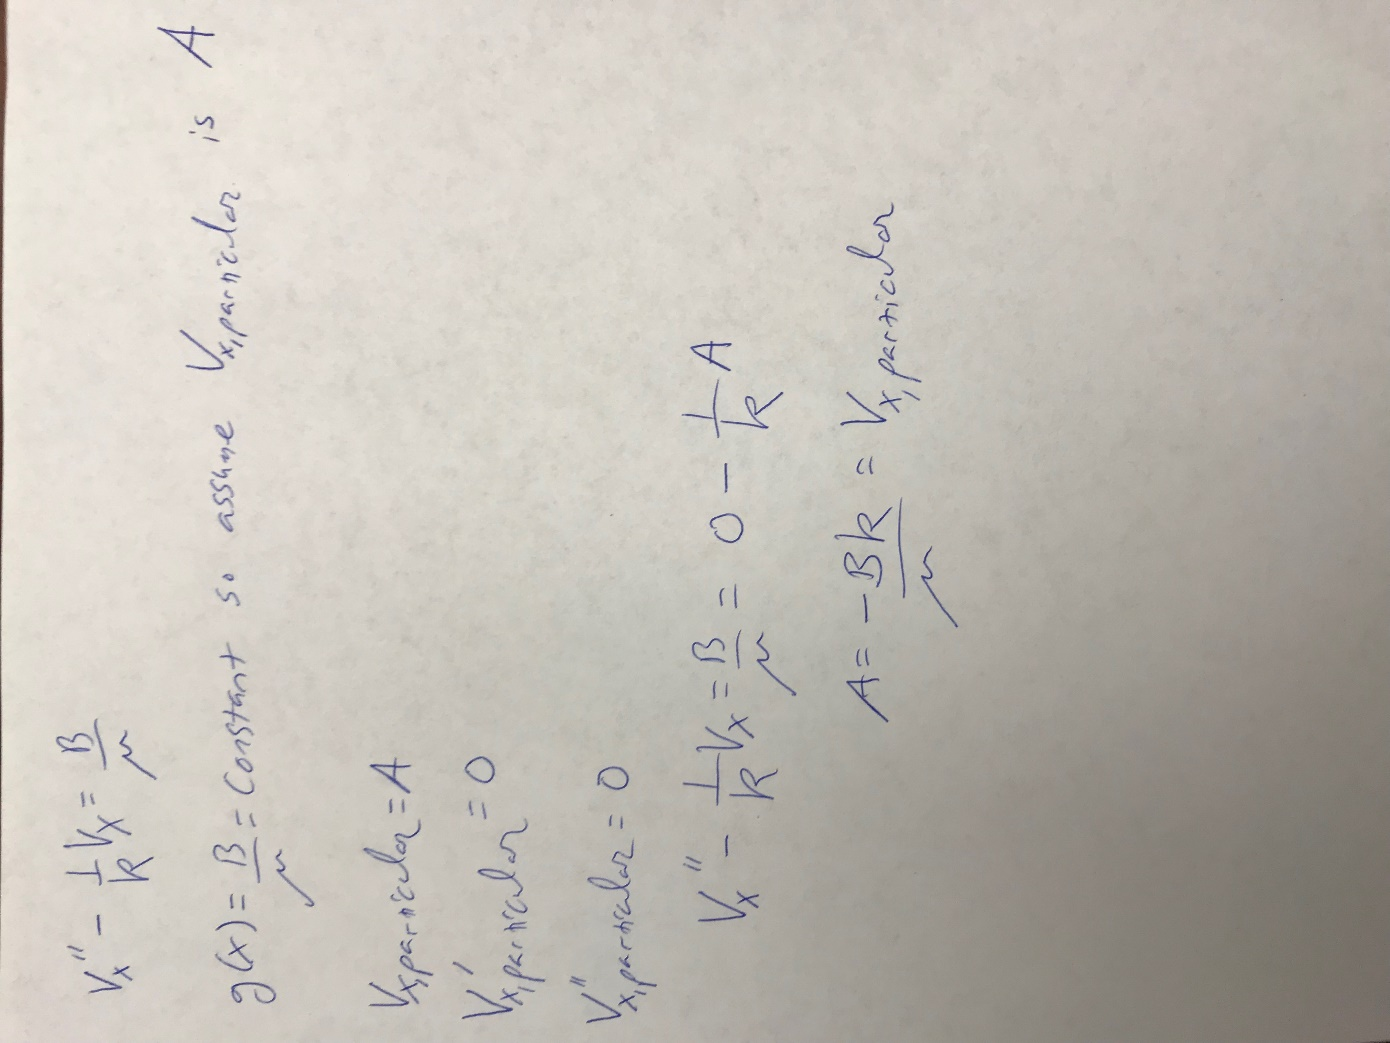 Vx'' - 1/k Vx = B/μ
g(x) = B/μ = constant so assume Vx,particular is A
Vx,particular = A
Vx,particular' = 0
Vx,particular'' = 0
Vx'' - 1/k Vx = B/μ = 0 - 1/k A
A = - Bk/μ = Vx,particular